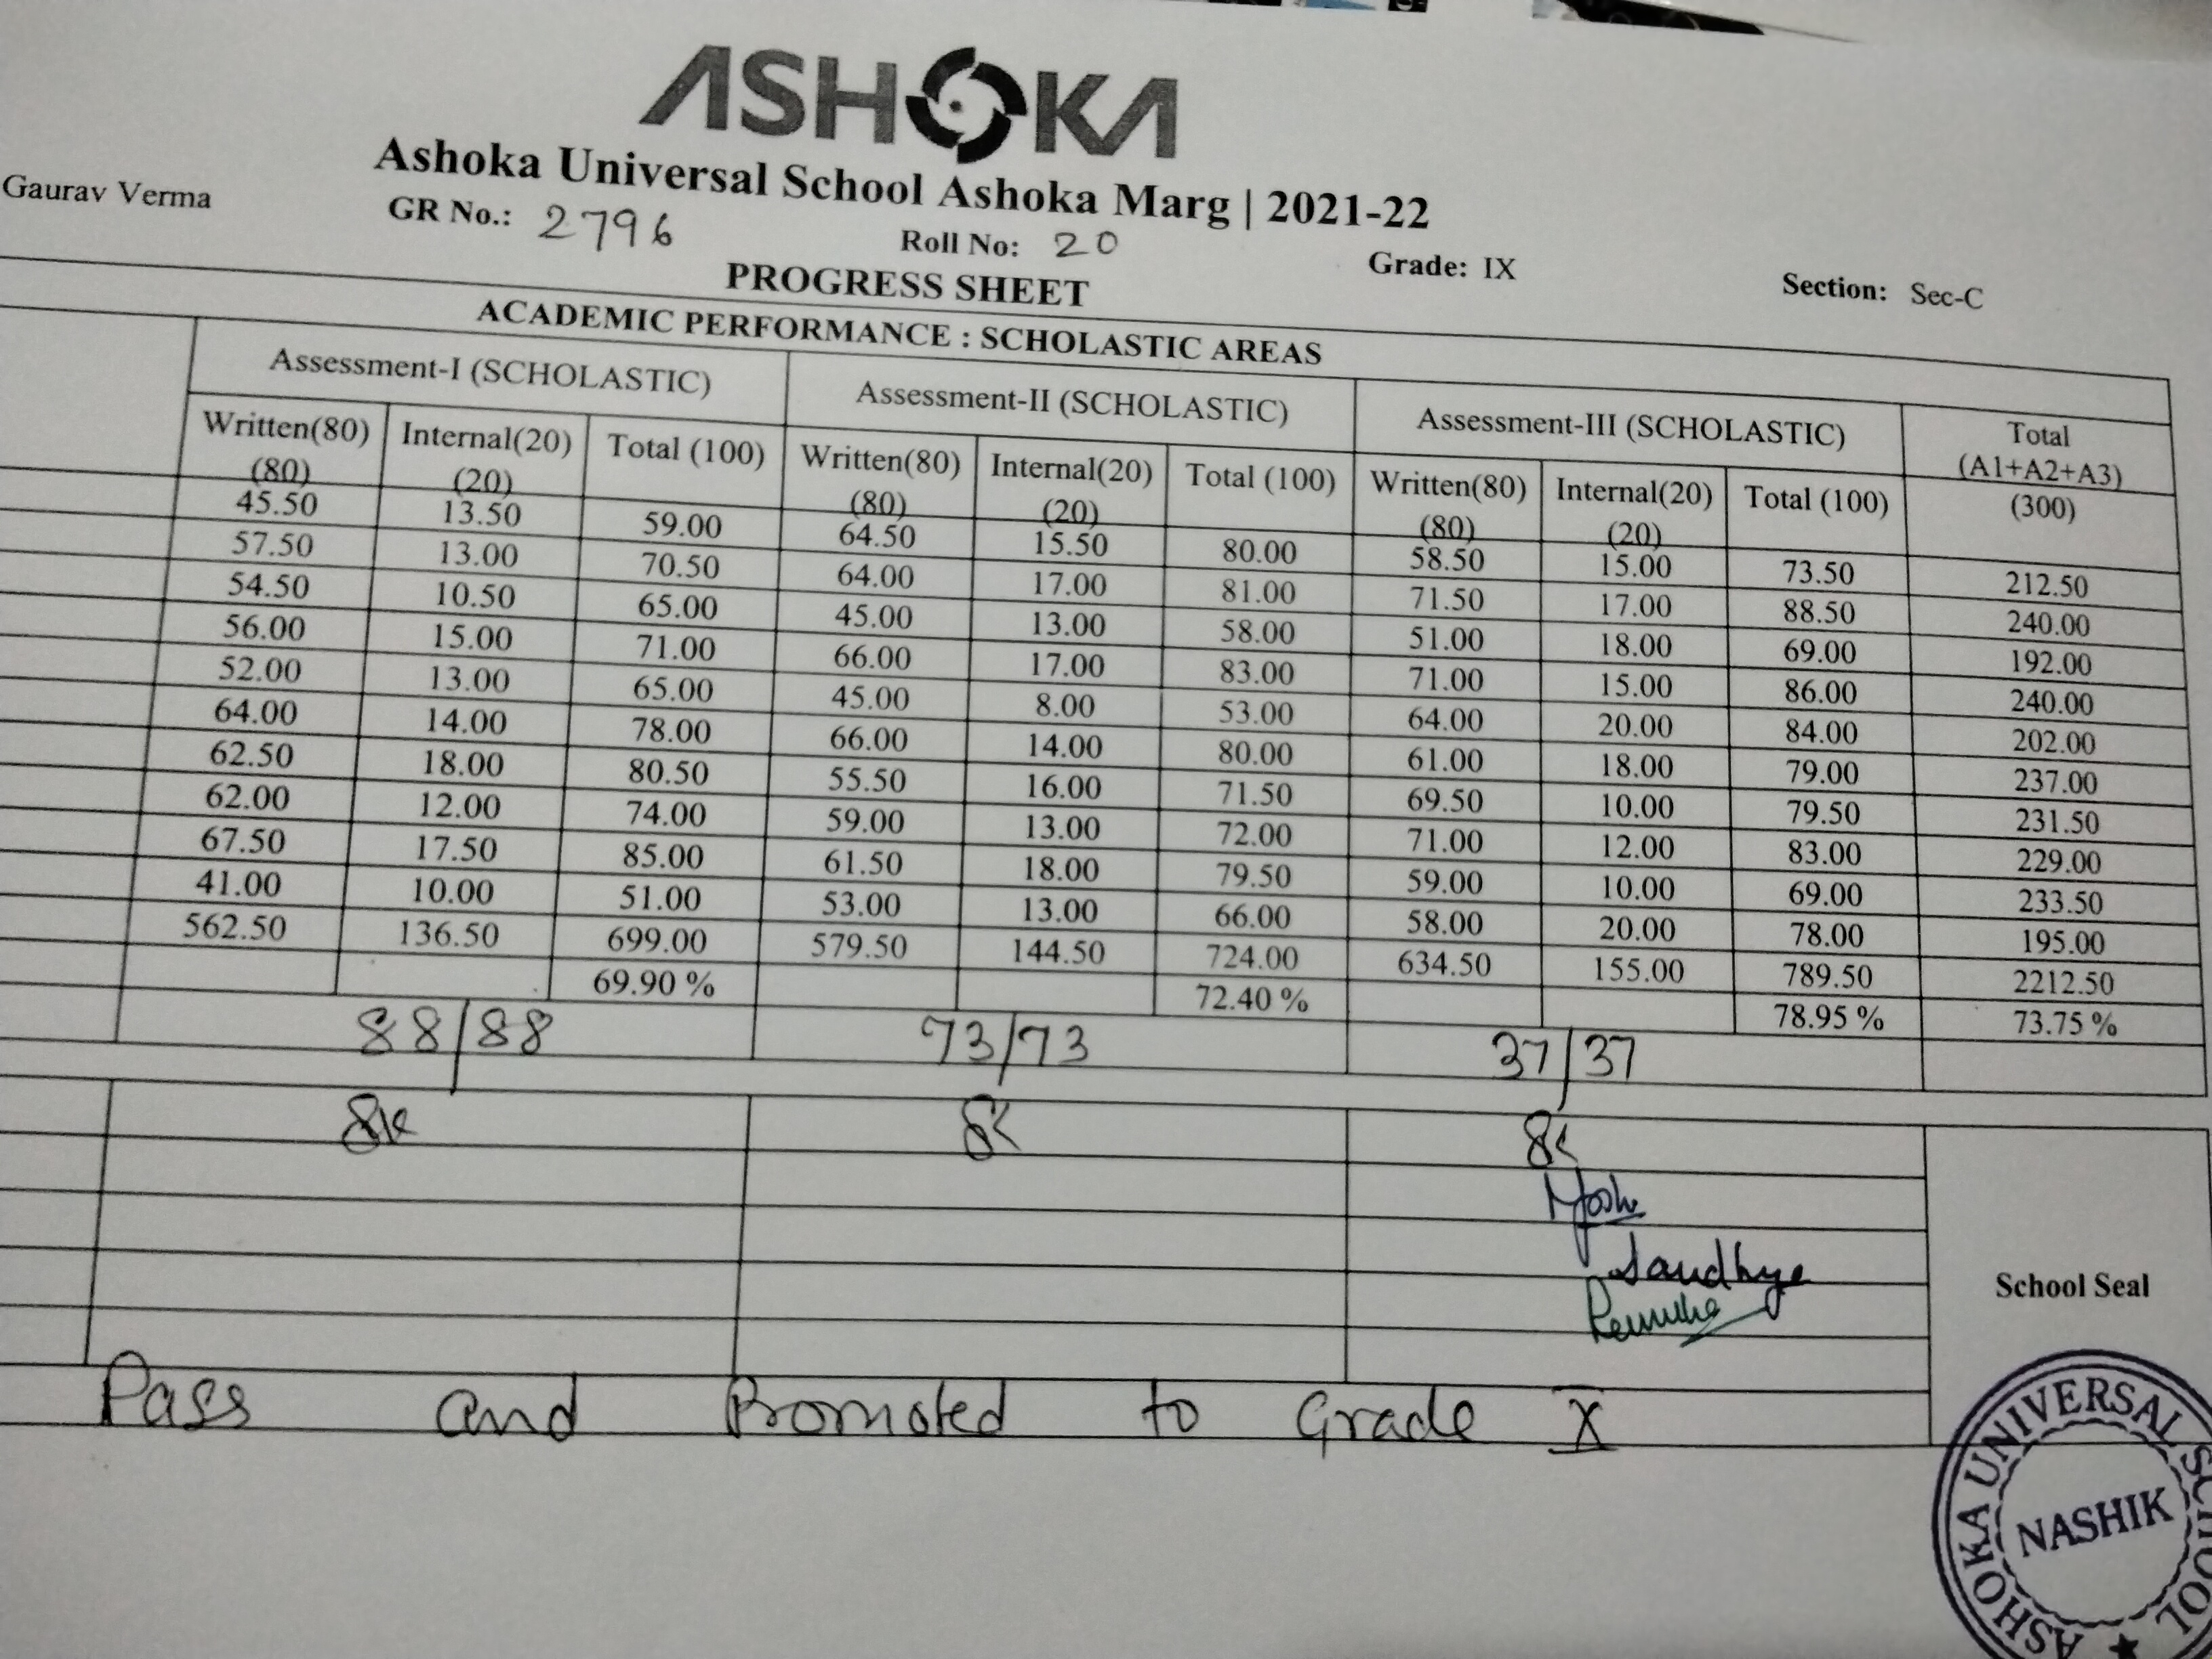 ASHOKA
Ashoka Universal School Ashoka Marg | 2021-22
Gaurav Verma
GR No.: 2796 Roll No: 20 Grade: IX Section: Sec-C
PROGRESS SHEET
ACADEMIC PERFORMANCE : SCHOLASTIC AREAS
Assessment-I (SCHOLASTIC) Assessment-II (SCHOLASTIC) Assessment-III (SCHOLASTIC) Total
(A1+A2+A3)
Written(80) Internal(20) Total (100) Written(80) Internal(20) Total (100) Written(80) Internal(20) Total (100) (300)
(80) (20) (80) (20) (80) (20)
45.50 13.50 59.00 64.50 15.50 80.00 58.50 15.00 73.50 212.50
57.50 13.00 70.50 64.00 17.00 81.00 71.50 17.00 88.50 240.00
54.50 10.50 65.00 45.00 13.00 58.00 51.00 18.00 69.00 192.00
56.00 15.00 71.00 66.00 17.00 83.00 71.00 15.00 86.00 240.00
52.00 13.00 65.00 45.00 8.00 53.00 64.00 20.00 84.00 202.00
64.00 14.00 78.00 66.00 14.00 80.00 61.00 18.00 79.00 237.00
62.50 18.00 80.50 55.50 16.00 71.50 69.50 10.00 79.50 231.50
62.00 12.00 74.00 59.00 13.00 72.00 71.00 12.00 83.00 229.00
67.50 17.50 85.00 61.50 18.00 79.50 59.00 10.00 69.00 233.50
41.00 10.00 51.00 53.00 13.00 66.00 58.00 20.00 78.00 195.00
562.50 136.50 699.00 579.50 144.50 724.00 634.50 155.00 789.50 2212.50
69.90 % 72.40 % 78.95 % 73.75 %
88/88 73/73 37/37
Sandhya
School Seal
Pass and Promoted to Grade X
ASHOKA UNIVERSAL SCHOOL
NASHIK